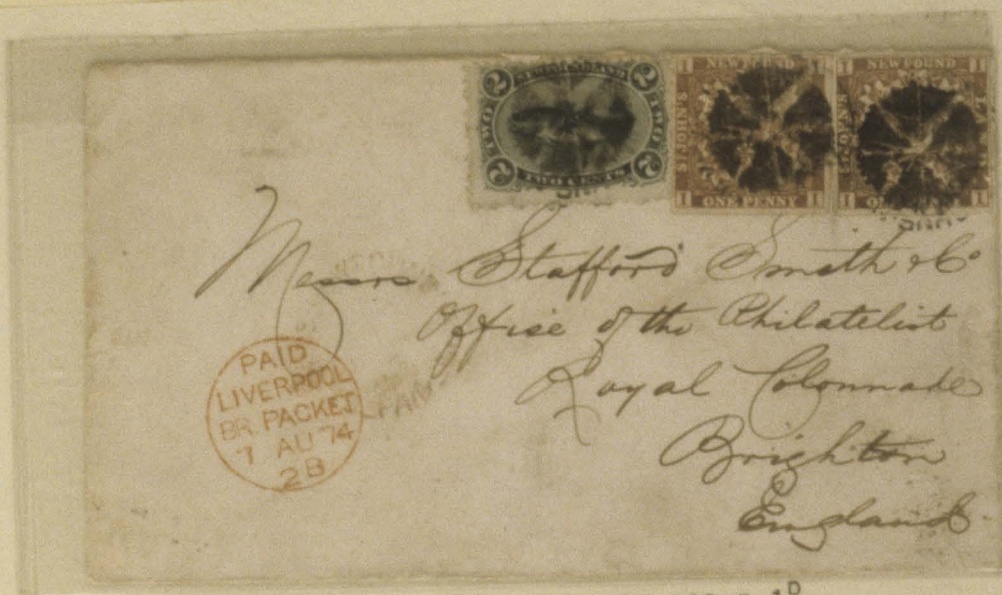 2 NEWFOUNDLAND 2
TWO TWO
2 TWO CENTS 2
1 NEWFOUND 1
ST JOHN'S
1 ONE PENNY 1
1 NEWFOUND 1
ST JOHN'S
1
Messrs Stafford Smith & Co
Office of the Philatelist
Royal Colonnade
Brighton
England
PAID
LIVERPOOL
BR. PACKET
7 AU 74
2B